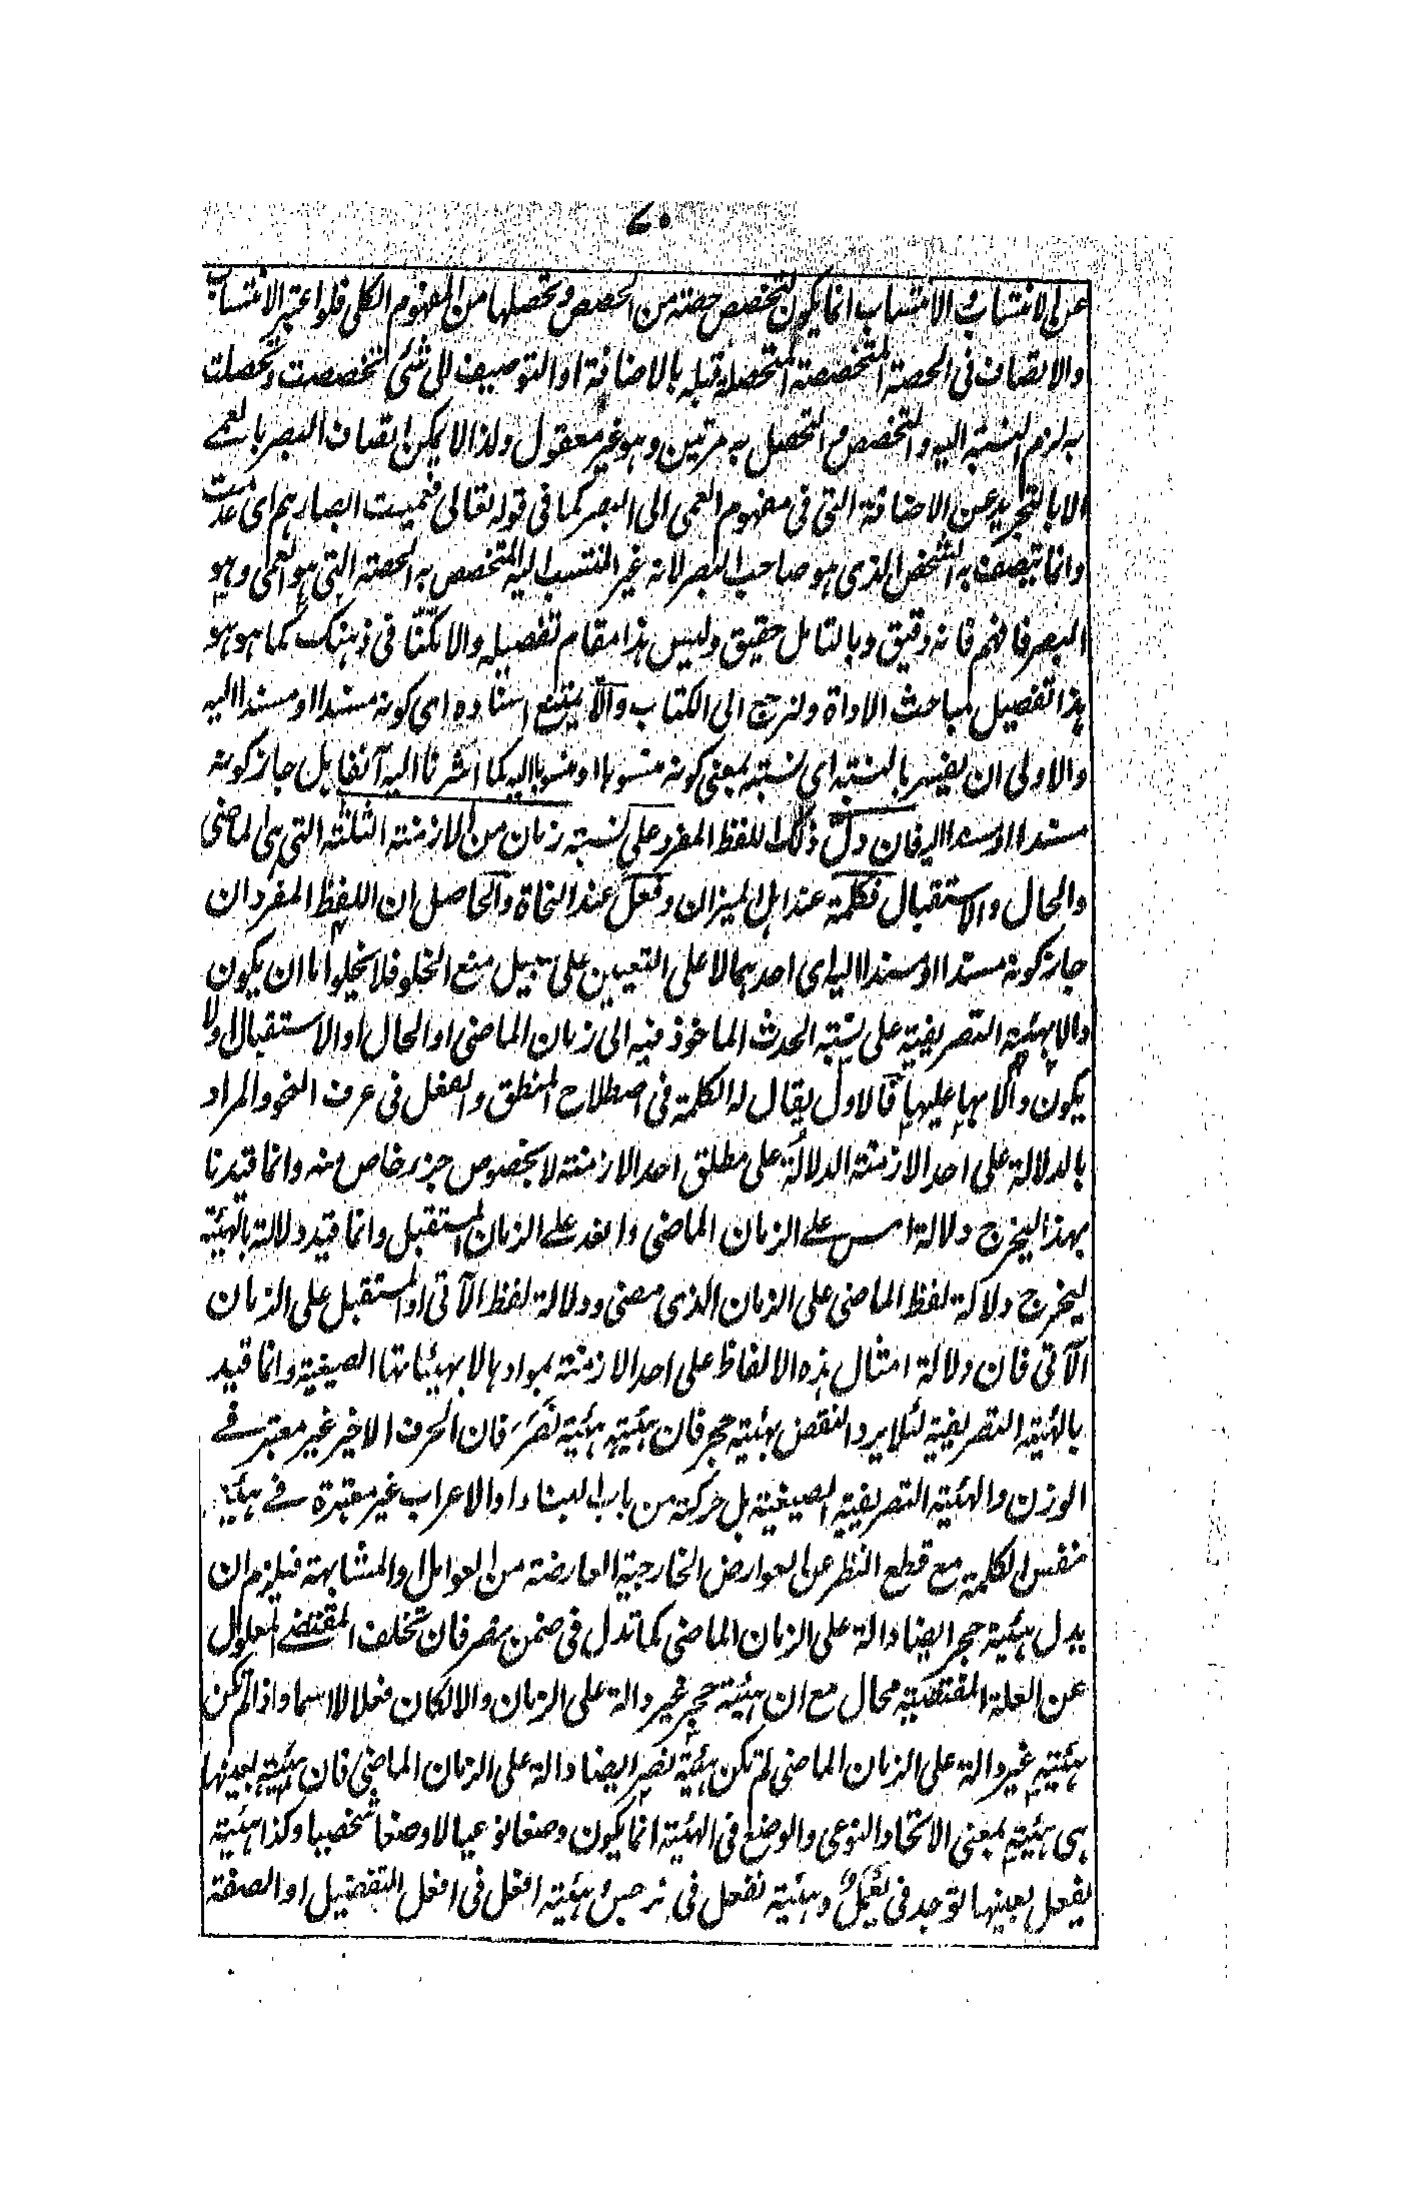 ٧٠
عن الانتساب والانتساب انما يكون لتخصص حصة من الحصص وتحصلها من المفهوم الكلى فلو اعتبر الانتساب
والاتصاف فى الحصة المتخصصة المتحصلة قبله بالاضافة او التوصيف الى شئ تخصصت وتحصلت
به لزم النسبة اليه والتخصص والتحصل به مرتين وهو غير معقول ولذا لا يمكن اتصاف البصر بالعمى
الا بالتجريد عن الاضافة التى فى مفهوم العمى الى البصر كما فى قوله تعالى فعميت ابصارهم اى عدمت
وانما يتصف به الشخص الذى هو صاحب البصر لانه غير المنتسب اليه المتخصص به الحصة التى هو العمى وهو
البصر فافهم فانه دقيق وبالتامل حقيق وليس هذا مقام تفصيله والا مكنا فى ذهنك كما هو هو
هذا تفصيل مباحث الاداة ولنرجع الى الكتاب والا يمتنع اسناده اى كونه مسندا او مسندا اليه
والاولى ان يفسر بالنسبة اى نسبته بمعنى كونه منسوبا او منسوبا اليه كما اشرنا اليه آنفا بل جاز كونه
مسندا او مسندا اليه فان دل ذلك اللفظ المفرد على نسبة زمان من الازمنة الثلثة التى هى الماضى
والحال والاستقبال فكلمة عند اهل الميزان وفعل عند النحاة والحاصل ان اللفظ المفرد ان
جاز كونه مسندا او مسندا اليه اى احدهما لا على التعيين على سبيل منع الخلو فلا يخلو اما ان يكون
دالا بهيئته التصريفية على نسبة الحدث الماخوذ فيه الى زمان الماضى او الحال او الاستقبال او لا
يكون دالا بها عليها فالاول يقال له الكلمة فى اصطلاح المنطق والفعل فى عرف النحو والمراد
بالدلالة على احد الازمنة الدلالة على مطلق احد الازمنة لا بخصوص جزء خاص منه وانما قيدنا
بهذا ليخرج دلالة امس على الزمان الماضى والغد على الزمان المستقبل وانما قيد دلالته بالهيئة
ليخرج دلالة لفظ الماضى على الزمان الذى مضى ودلالة لفظ الآتى او المستقبل على الزمان
الآتى فان دلالة امثال هذه الالفاظ على احد الازمنة بموادها لا بهيئاتها الصيغية وانما قيد
بالهيئة التصريفية لئلا يرد النقض بهيئة حجر فان هيئته هيئة نَصَرَ فان الحرف الاخير غير معتبر فى
الوزن والهيئة التصريفية الصيغية بل حركته من باب البناء او الاعراب غير معتبرة فى هيئة
نفس الكلمة مع قطع النظر عن العوارض الخارجية العارضة من العوامل والمشابهة فيلزم ان
يدل هيئة حجر ايضا دالة على الزمان الماضى كما تدل فى ضمن نصر فان تخلف المقتضى المعلول
عن العلة المقتضية محال مع ان هيئة حجر غير دالة على الزمان والا لكان فعلا لا اسما واذا لم تكن
هيئته غير دالة على الزمان الماضى لم تكن هيئة نصر ايضا دالة على الزمان الماضى فان هيئته بعينها
هى هيئته بمعنى الاتحاد النوعى والوضع فى الهيئة انما يكون وضعا نوعيا لا وضعا شخصيا وكذا هيئة
يفعل بعينها توجد فى يَعْمَلٌ وهيئة نفعل فى نرجس وهيئة افعل فى افعل التفضيل او الصفة